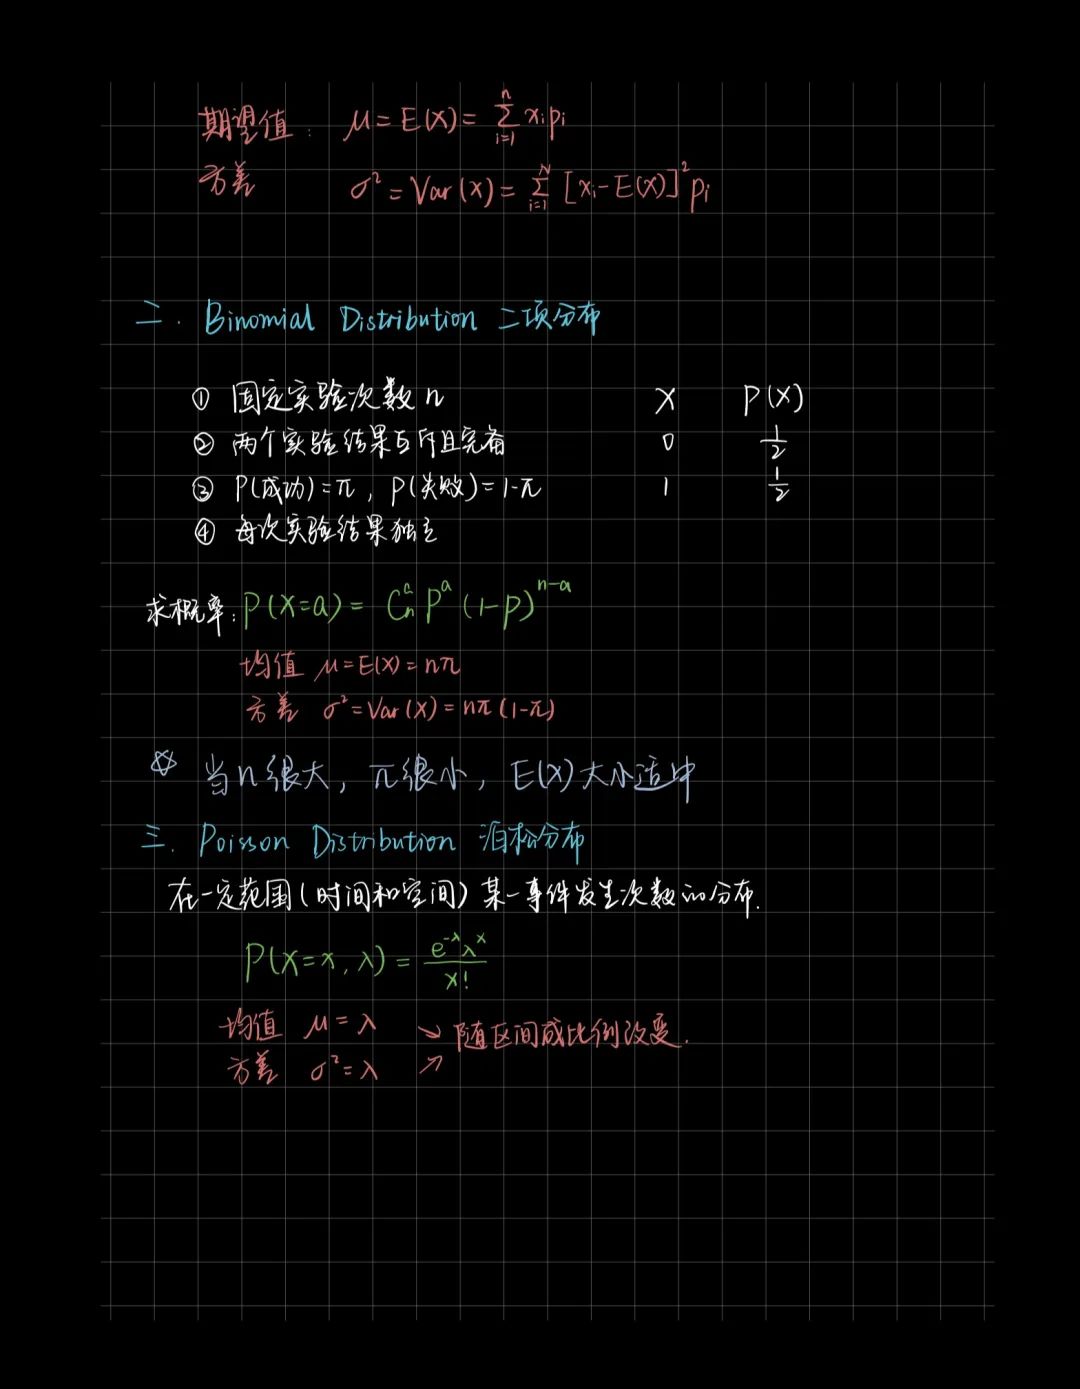 期望值: μ=E(X)=∑ⁿᵢ₌₁ xᵢpᵢ
方差 σ²=Var(X)=∑ᴺᵢ₌₁ [xᵢ-E(X)]²pᵢ
二. Binomial Distribution 二项分布
① 固定实验次数n X P(X)
② 两个实验结果互斥且完备 0 1/2
③ P(成功)=π, P(失败)=1-π 1 1/2
④ 每次实验结果独立
求概率: P(X=a)= Cₙᵃ Pᵃ (1-P)ⁿ⁻ᵃ
均值 μ=E(X)=nπ
方差 σ²=Var(X)=nπ(1-π)
☆ 当n很大, π很小, E(X)大小适中
三. Poisson Distribution 泊松分布
在一定范围(时间和空间)某一事件发生次数的分布.
P(X=x, λ) = e^-λ λ^x / x!
均值 μ=λ ↘ 随区间成比例改变.
方差 σ²=λ ↗